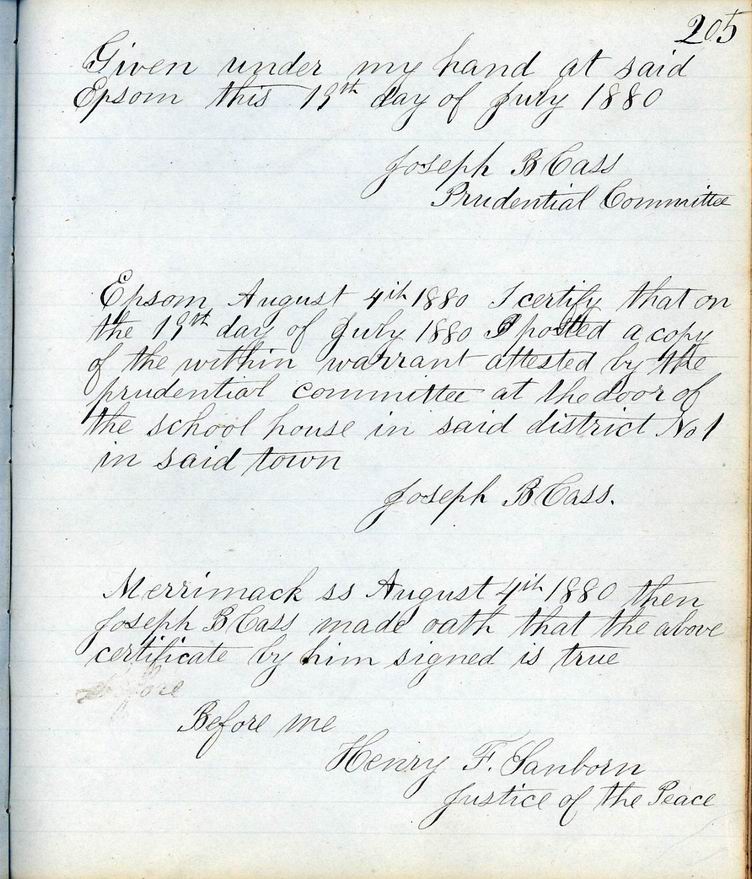 205
Given under my hand at said
Epsom this 19th day of July 1880
Joseph B Cass
Prudential Committee
Epsom August 4th 1880 I certify that on
the 19th day of July 1880 I posted a copy
of the within warrant attested by the
prudential committee at the door of
the school house in said district No 1
in said town
Joseph B Cass.
Merrimack ss August 4th 1880 then
Joseph B Cass made oath that the above
certificate by him signed is true
Before me
Henry F. Sanborn
Justice of the Peace